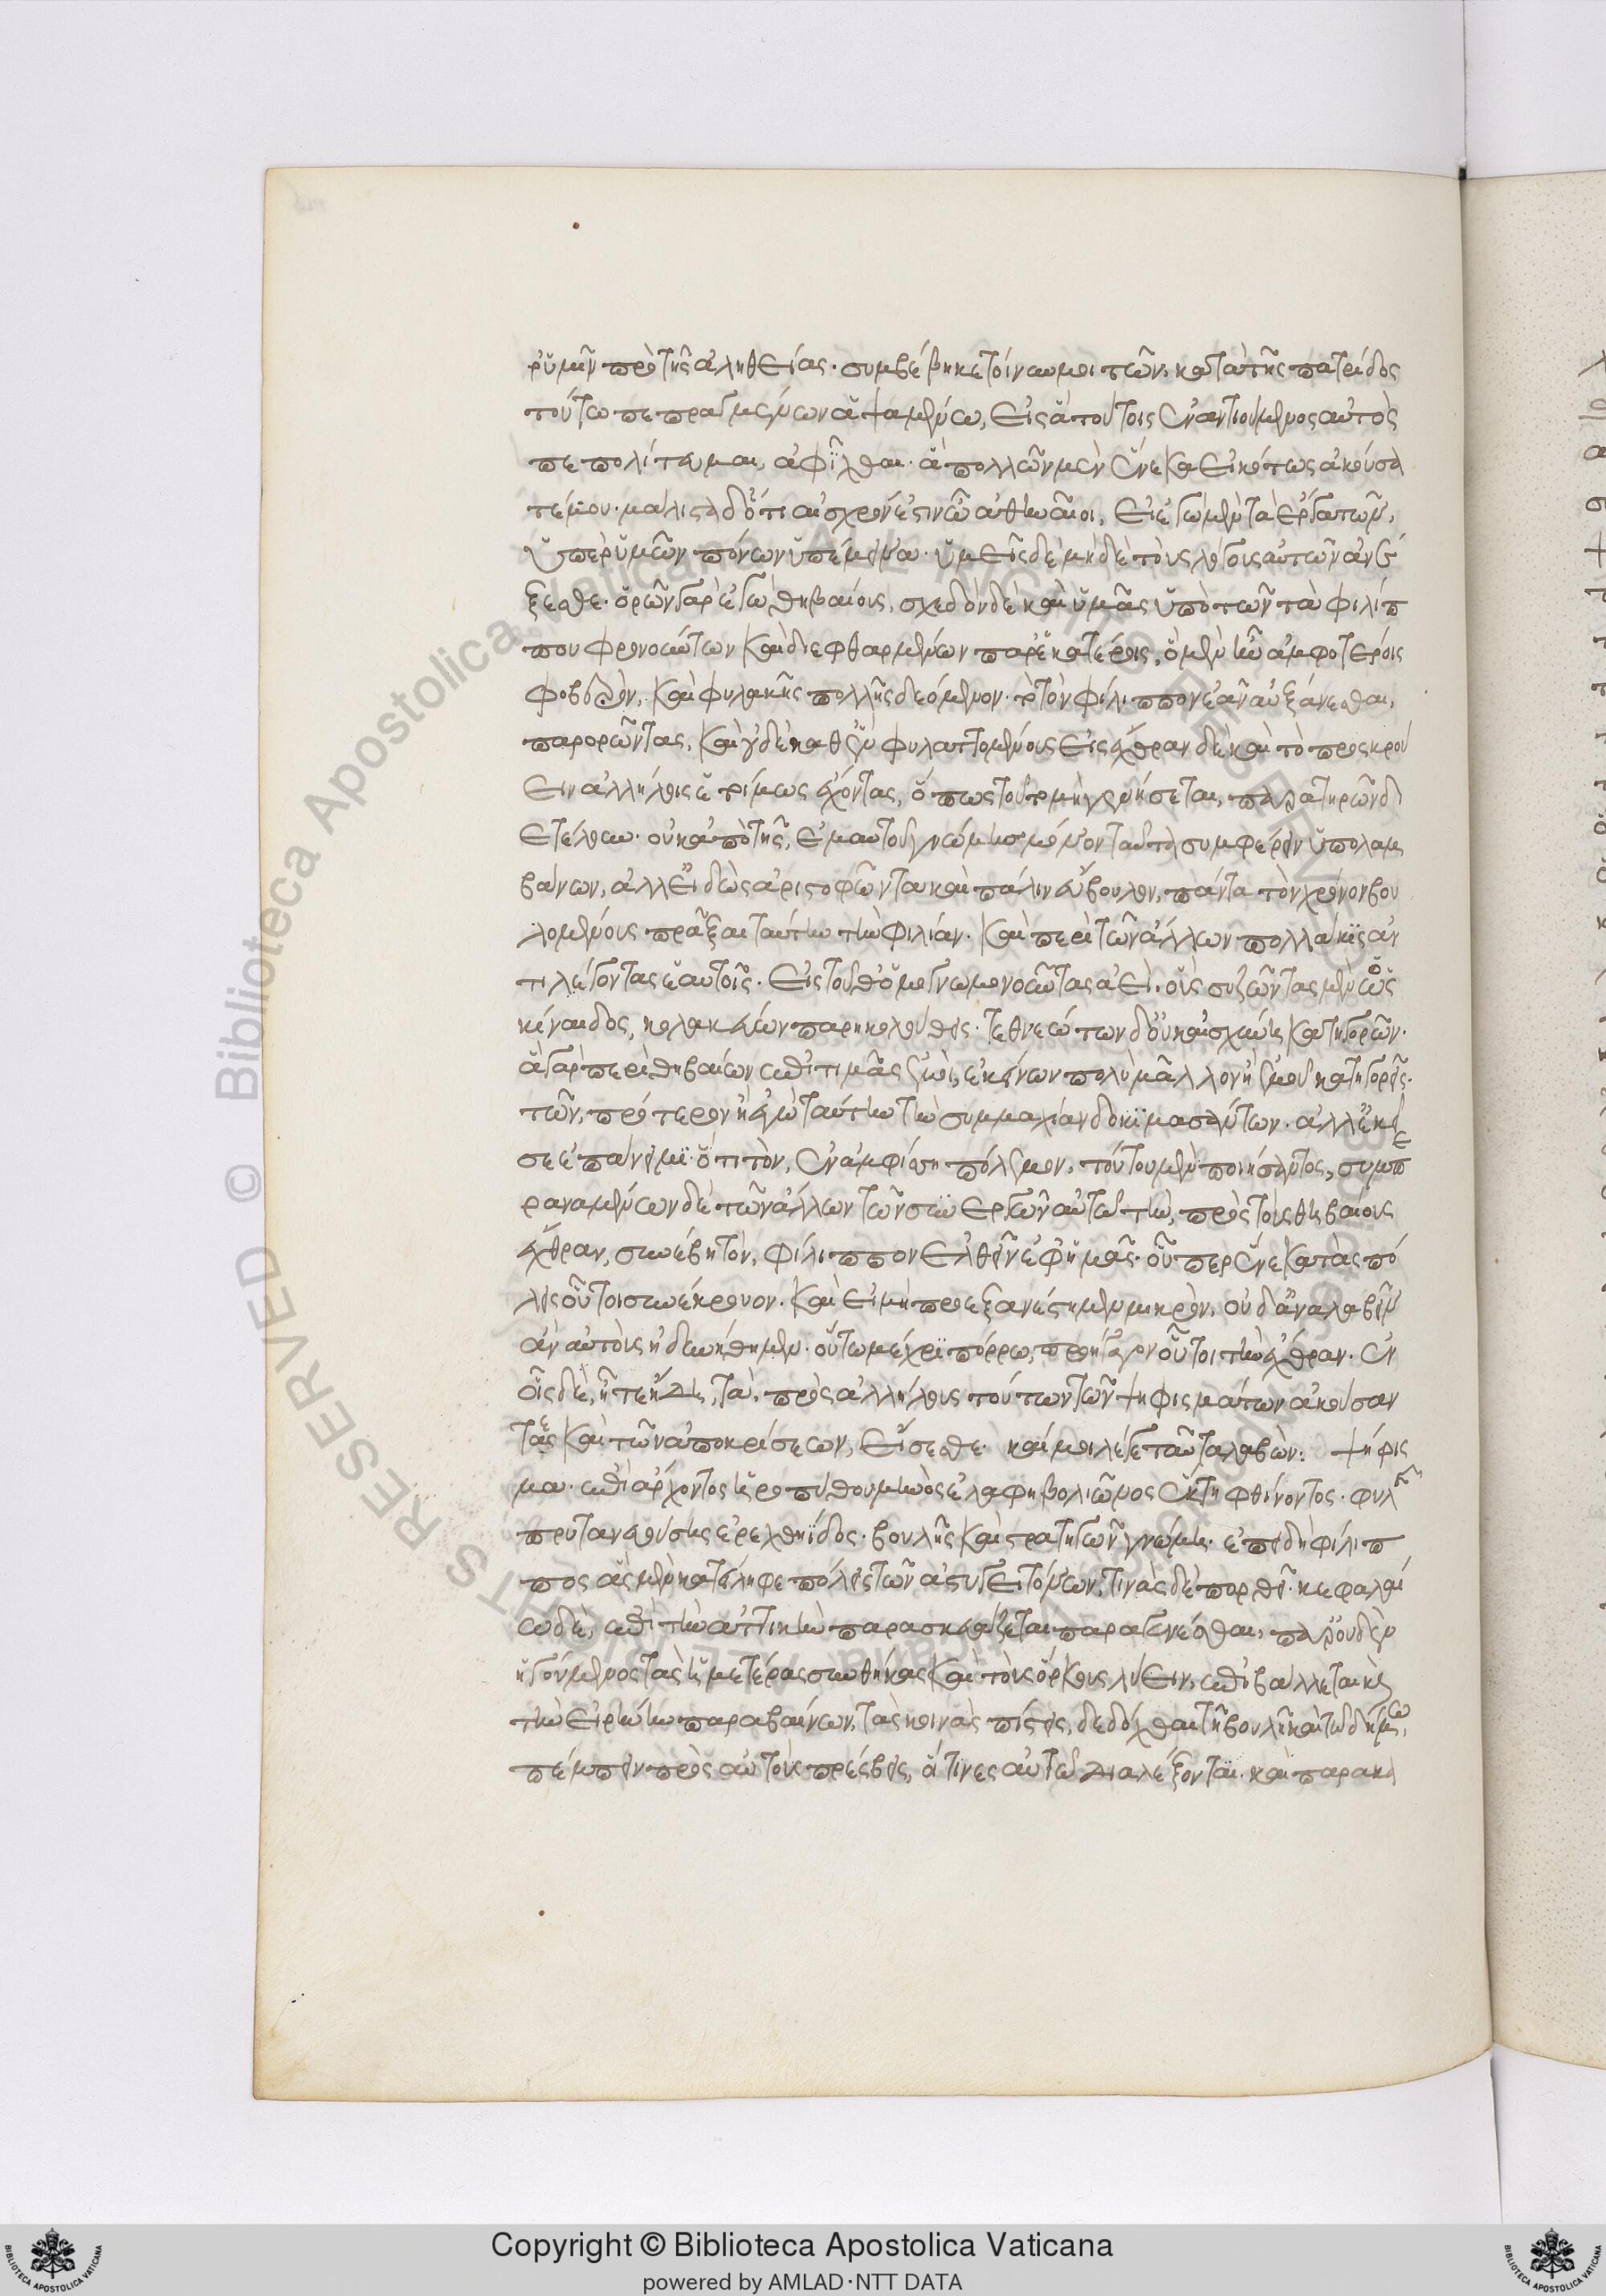 ρ' ὑμῖν πρὸ τῆς ἀληθείας. συμβέβηκε τοίνυν μοι τῶν, κατὰ τῆς πατρίδος
τούτω πεπραγμένων ἁψαμένω, εἰς ἃ τούτοις ἐναντιούμενος αὐτὸς
πεπολίτευμαι, ἀφῖχθαι. ἃ πολλῶν μὲν ἕνεκα εἰκότως ἀκούσαι
τέ μου. μάλιστα δ' ὅτι αἰσχρόν ἐστιν ὦ ἄνδρες ἀθηναῖοι, εἰ ἐγὼ μὲν τὰ ἔργα τῶν,
ὑπὲρ ὑμῶν πόνων ὑπέμεινα. ὑμεῖς δὲ μηδὲ τοὺς λόγους αὐτῶν ἀνέ
ξεσθε. ὁρῶν γὰρ ἐγὼ θηβαίους, σχεδὸν δὲ καὶ ὑμᾶς ὑπὸ τῶν τὰ φιλίπ
που φρονούντων καὶ διεφθαρμένων παρ' ἑκατέροις, ὃ μὲν ἦν ἀμφοτέροις
φοβερὸν, καὶ φυλακῆς πολλῆς δεόμενον. τὸ τὸν φίλιππον ἐᾶν αὐξάνεσθαι,
παρορῶντας, καὶ οὐδὲ καθ' ἓν φυλαττομένους εἰς ἔχθραν δὲ καὶ τὸ προσκρού
ειν ἀλλήλοις ἑτοίμως ἔχοντας, ὅπως τοῦτο μὴ γενήσεται, παρατηρῶν δι
ετέλουν. οὐκ ἀπὸ τῆς, ἐμαυτοῦ γνώμης μόνον ταῦτα συμφέρειν ὑπολαμ
βάνων, ἀλλ' εἰδὼς ἀριστοφῶντα καὶ πάλιν εὔβουλον, πάντα τὸν χρόνον βου
λομένους πρᾶξαι ταύτην τὴν φιλίαν. καὶ περὶ τῶν ἄλλων πολλάκις ἀν
τιλέγοντας ἑαυτοῖς. εἰς τοῦθ' ὁμογνωμονοῦντας ἀεὶ. οὓς σὺ ζῶντας μὲν ὡς
κίναιδος, κολακεύων παρηκολούθεις. τεθνεώτων δ' οὐκ αἰσχύνη κατηγορῶν.
ἃ γὰρ περὶ θηβαίων ἐπιτιμᾶς ἐμοὶ, ἐκείνων πολὺ μᾶλλον ἢ ἐμοῦ κατηγορεῖς.
τῶν, πρότερον ἢ ἐγὼ ταύτην τὴν συμμαχίαν δοκιμασάντων. ἀλλ' ἐκεῖ
σε ἐπάνειμι. ὅτι τὸν, ἐν ἀμφίσση πόλεμον, τούτου μὲν ποιήσαντος, συμπ
ραναμένων δὲ τῶν ἄλλων τῶν συνεργῶν αὐτῷ τὴν, πρὸς τοὺς θηβαίους
ἔχθραν, συνέβη τὸν, φίλιππον ἐλθεῖν ἐφ' ἡμᾶς. οὗπερ ἕνεκα τὰς πό
λεις οὗτοι συνέκρουον. καὶ εἰ μὴ προεξανέστημεν μικρὸν, οὐδ' ἀναλαβεῖν
ἂν αὐτοὺς ἠδυνήθημεν. οὕτω μέχρι πόρρω, προήγαγον οὗτοι τὴν ἔχθραν. ἐν
οἷς δὲ, ἦτε ἤδη, τὰ, πρὸς ἀλλήλους τούτων τῶν ψηφισμάτων ἀκούσαν
τες καὶ τῶν ἀποκρίσεων, εἴσεσθε. καί μοι λέγε ταῦτα λαβών: ψήφις
μα. ἐπὶ ἄρχοντος ἡροπύθου μηνὸς ἐλαφηβολιῶνος ἕκτη φθίνοντος. φυλῆς
πρυτανευούσης ἐρεχθηΐδος. βουλῆς καὶ στρατηγῶν γνώμη. ἐπειδὴ φίλιπ
πος ἃς μὲν κατείληφε πόλεις τῶν ἀστυγειτόνων, τινὰς δὲ πορθεῖ. κεφαλαί
ω δὲ, ἐπὶ τὴν ἀττικὴν παρασκευάζεται παραγενέσθαι, παρ' οὐδὲν
ἡγούμενος τὰς ἡμετέρας συνθήκας καὶ τοὺς ὅρκους λύειν, ἐπιβάλλεται καὶ
τὴν εἰρήνην παραβαίνων, τὰς κοινὰς πίστεις, δεδόχθαι τῇ βουλῇ καὶ τῷ δήμω,
πέμπειν πρὸς αὐτὸν πρέσβεις, οἵτινες αὐτῷ διαλέξονται. καὶ παρακα
Copyright © Biblioteca Apostolica Vaticana
powered by AMLAD·NTT DATA